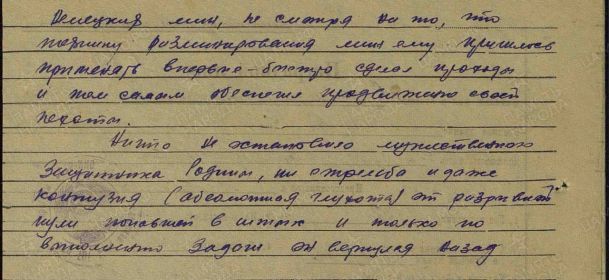 Немецких мин, не смотря на то, что
технику разминирования мин ему пришлось
применять впервые - быстро сделал проходы
и тем самым обеспечил продвижение своей
пехоты.
Ничто не остановило мужественного
Защитника Родины, ни стрельба и даже
контузия (абсолютная глухота) от разрывной
пули попавшей в штык и только по
выполнению задачи он вернулся назад